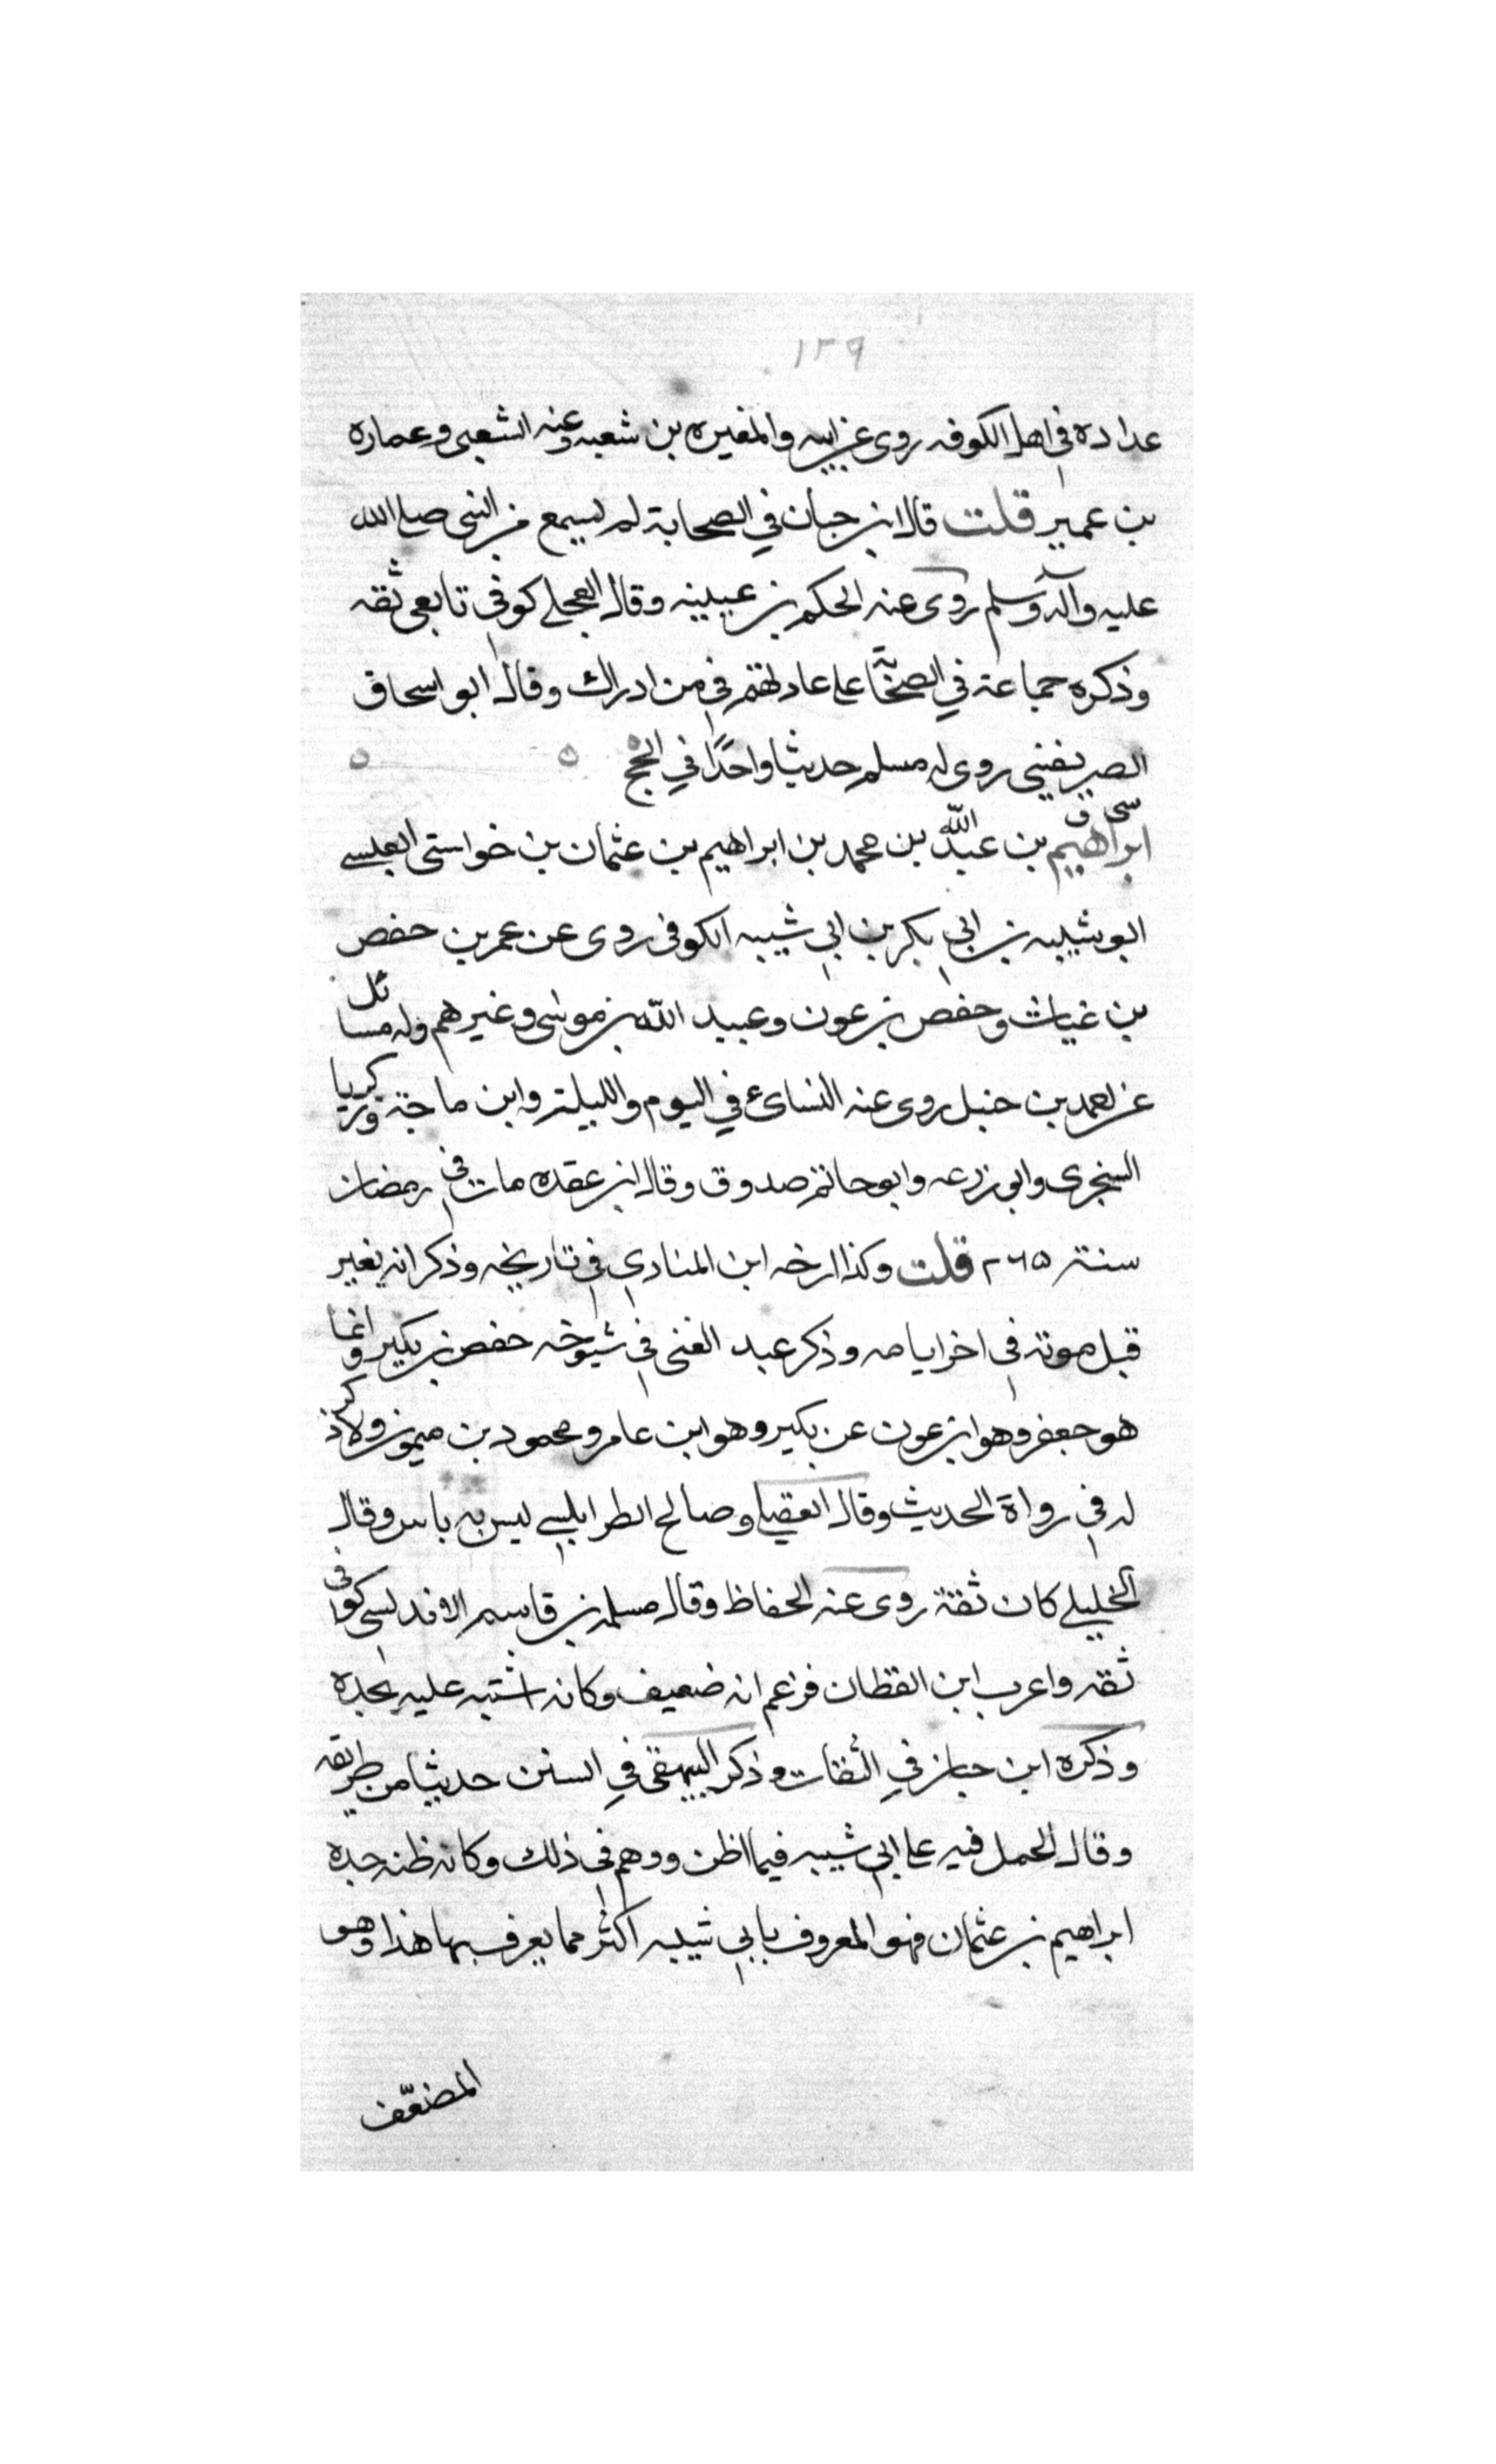 ١٢٩
عداده في اهل الكوفه روى عن ابيه والمغيره بن شعبه وعنه الشعبى وعماره
بن عمير قلت قال ابن حبان في الصحابة لم يسمع من النبى صلى الله
عليه وآله وسلم روى عنه الحكم بن عيينه وقال العجلي كوفي تابعى ثقه
وذكره جماعة في الصحابة على عادتهم في من ادراك وقال ابو اسحاق
الصريفينى روى له مسلم حديثا واحدًا في الحج
سى ق
ابراهيم بن عبد الله بن محمد بن ابراهيم بن عثمان بن خواستى العبسي
ابو شيبه بن ابي بكر بن ابي شيبه الكوفى روى عن عمر بن حفص
بن غياث وحفص بن عون وعبيد الله بن موسى وغيرهم وله مسائل
عن احمد بن حنبل روى عنه النسائ في اليوم والليلة وابن ماجة وزكريا
السنجرى وابو زرعه وابو حاتم صدوق وقال ابن عقده مات في رمضان
سنة ٢٦٥ قلت وكذا ارخه ابن المنادي في تاريخه وذكر انه يغير
قبل موته في اخر ايامه وذكر عبد الغنى في شيوخه حفص بن بكير وانما
هو جعفر وهو ابن عون عن بكير وهو ابن عامر ومحمود بن ميمون ولا ذكر
له في رواة الحديث وقال العقيلي وصالح الطرابلسي ليس به باس وقال
الخليلي كان ثقة روى عنه الحفاظ وقال مسلمه بن قاسم الاندلسى كوفى
ثقه واغرب ابن القطان فزعم انه ضعيف وكانه اشتبه عليه بجده
وذكره ابن حبان في الثقات وذكر البيهقى في السنن حديثا من طريقه
وقال الحمل فيه على ابي شيبه فيما اظن ووهم في ذلك وكانه ظنه جده
ابراهيم بن عثمان فهو المعروف بابي شيبه اكثر مما يعرف بها هذا وهو
المضعّف